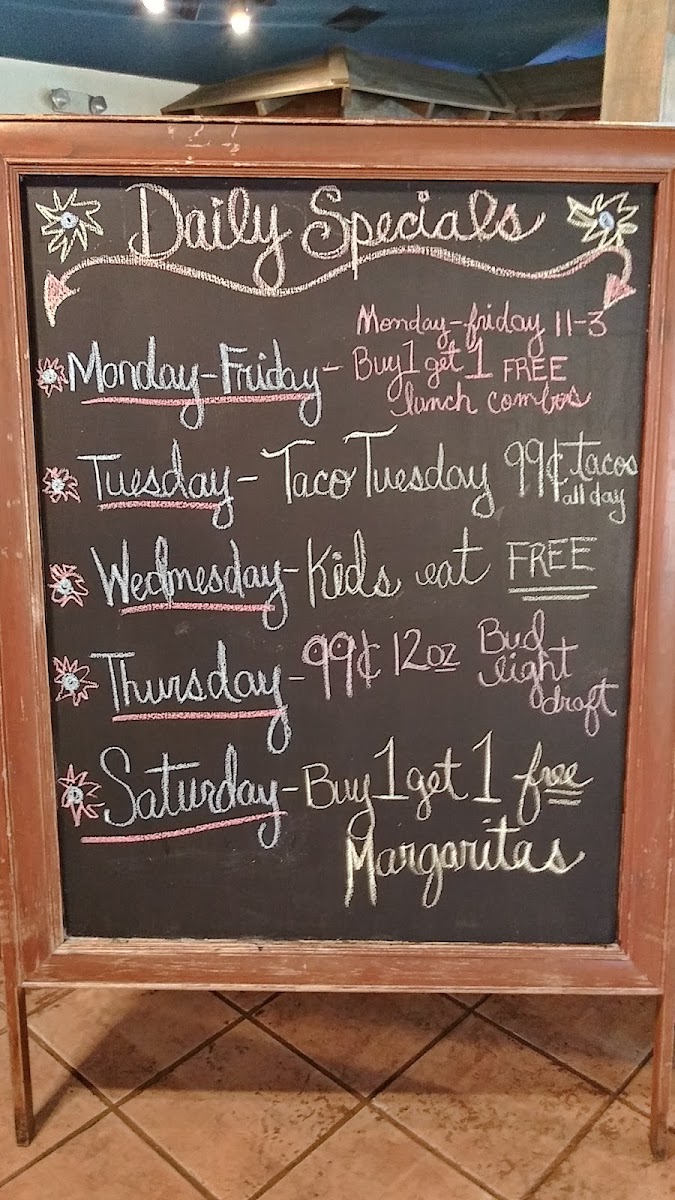 Daily Specials
Monday-friday 11-3
Monday-Friday - Buy 1 get 1 FREE
lunch combos
Tuesday - Taco Tuesday 99¢ tacos
all day
Wednesday - Kids eat FREE
Thursday - 99¢ 12oz Bud
light
draft
Saturday - Buy 1 get 1 free
Margaritas